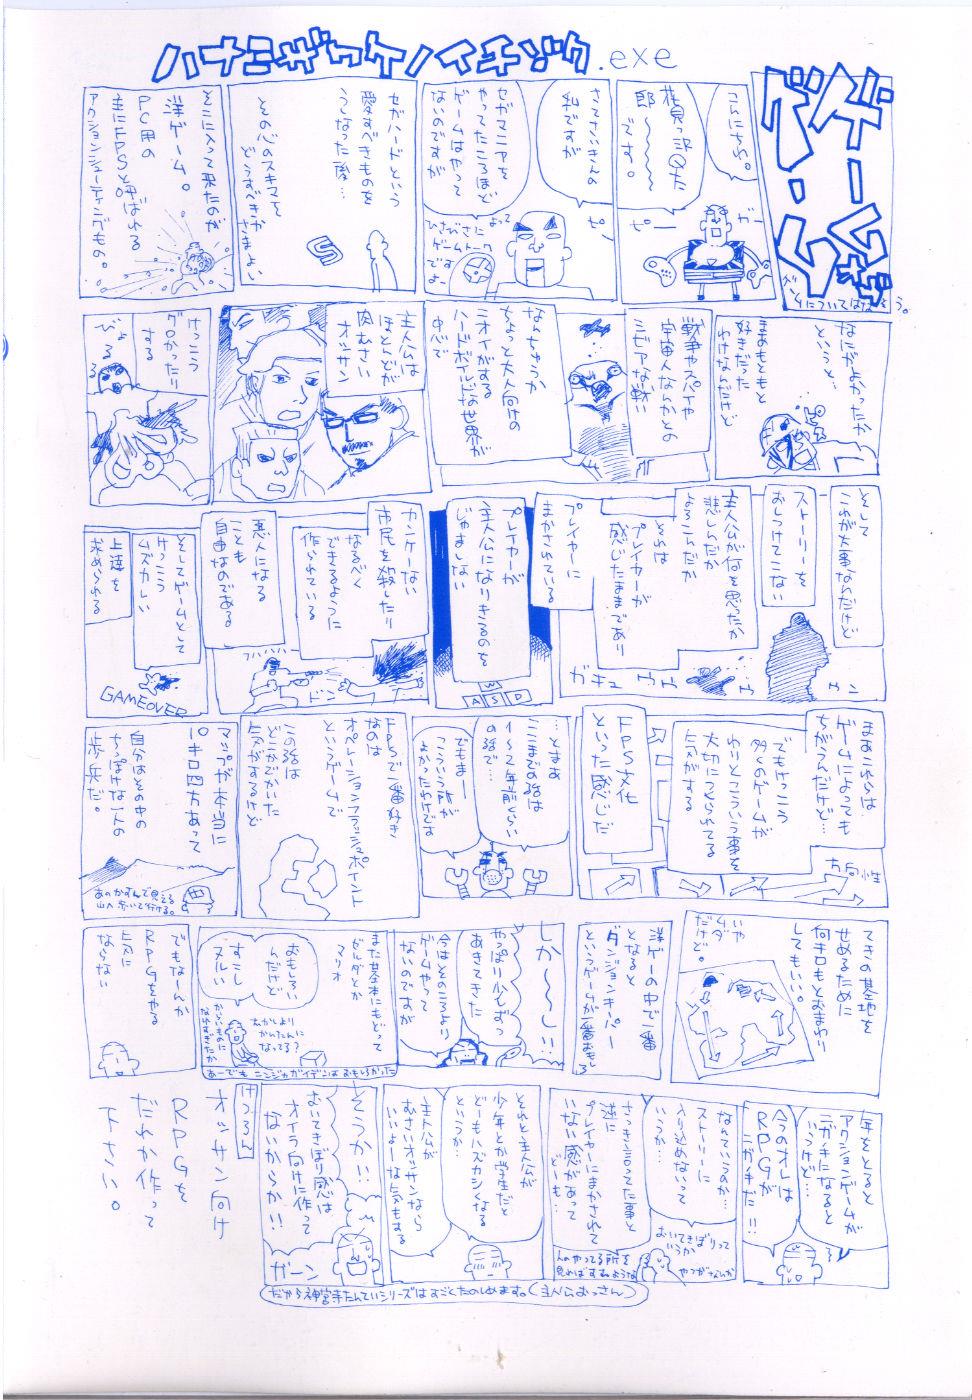 ハナミザワケノイチゾク.exe
ゲームジ
こんにちわ。
花見沢Q太
郎〜〜〜〜
です。
ガー
ピー
さてさいきんの
私ですが
セガマニアを
やってたころほど
ゲームはやって
ないのですが
よって
ひさびさに
ゲームトーク
ですよ
ピー
セガハードという
愛すべきものを
うしなった後…
その心のスキマを
どうすべきか
さまよい
S
そこに入って来たのが
洋ゲーム。
PC用の
主にFPSと呼ばれる
アクションシューティングもの。
なにがよかったか
というと…
まあもともと
好きだった
わけなんだけど
戦争やスパイや
宇宙人なんかとの
シビアな戦い
なんちゅうか
ちょっと大人向けの
ニオイがする
ハードボイルドな世界が
中心で
主人公は
ほとんどが
肉むさい
オッサン
けっこう
グロかったり
する
びょる
そして
これが大事なんだけど
ストーリーを
おしつけてこない
主人公が何を思ったか
悲しんだか
よろこんだか
それは
プレイヤーが
感じたままであり
ガキュ
プレイヤーに
まかされている
プレイヤーが
主人公になりきるのを
じゃましない
W
A S D
カンケーない
市民を殺したり
なるべく
できるように
作られている
悪人になる
ことも
自由なのである
フハハハハ
ドン
そしてゲームとして
けっこう
ムズカしい
上達を
求められる
GAMEOVER
まあこれらは
ゲームによっても
ちがうんだけど…
でもけっこう
多くのゲームが
わりとこういう事を
大切につくられてる
気がする
方向性
FPS文化
といった感じだ
…とまあ
ここまでの話は
1〜2年前くらい
の話で…
でもまー
こういう所が
よかったわけです
FPSで一番好き
なのは
オペレーションフラッシュポイント
というゲームで
この話は
どこかでかいた
気がするけど
マップが本当に
10キロ四方あって
自分はその中の
ちっぽけな一人の
歩兵だ。
あのかすんで見える
山へ歩いて行ける。
てきの基地を
せめるために
何キロもとおまわり
してもいい。
いや
ムダ
だけど。
洋ゲーの中で一番
となると
ダンジョンキーパー
というゲームが一番おもしろ
しか〜〜し!!
やっぱり少しずつ
あきてきた
今はそのころより
ゲームやって
ないのですが
また基本にもどって
ゼルダとか
マリオ
おもしろい
んだけど
すこし
ヌルい
むかしより
かんたんに
なってる?
からいものに
なれすぎたか
あーでもニンジャガイデンはおもしろかった
でもなーんか
RPGをやる
気に
ならない
年をとると
アクションゲームが
ニガテになると
いうけど…
今のオレは
RPGが
ニガテだ!!
なんていうのか…
ストーリーに
入り込めないって
いうか…
さっき言ってた事と
プレイヤーにまかされて
いない感があって
どーも…
おいてきぼりって
いうか
人のやってる所を
見ればすむような
やつがなんか
それと主人公が
少年とか学生だと
どーもハズカシくなる
というか…
主人公が
むさいオッサンなら
いいよーな気もする
そうか!!
おいてきぼり感は
オイラ向けに作って
ないからか!!
ガーン
だから神宮寺たんていシリーズはすごとたのしめます。(主人公おっさん)
けつろん
オッサン向け
RPGを
だれか作って
下さい。